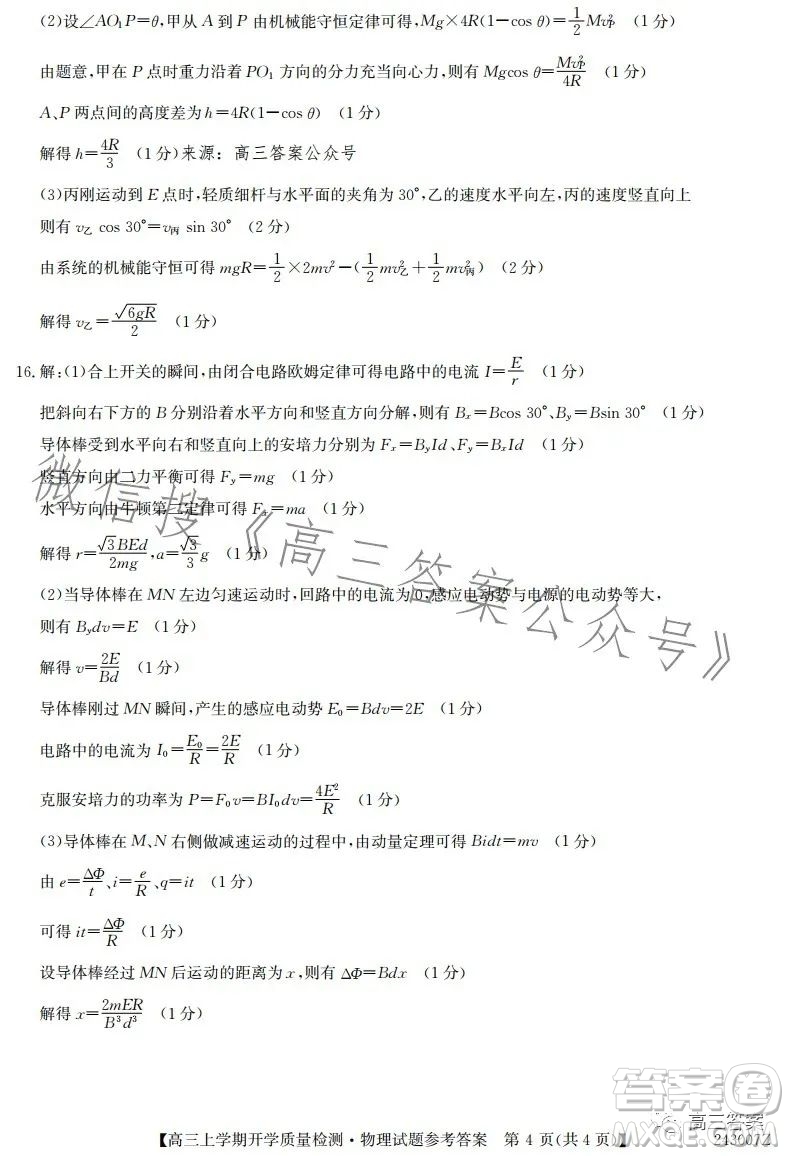 (2)设∠AO₁P=θ,甲从 A 到 P 由机械能守恒定律可得,Mg×4R(1-cos θ)=1/2 Mv_P² (1 分)
由题意,甲在 P 点时重力沿着 PO₁ 方向的分力充当向心力,则有 Mgcos θ=Mv_P²/4R (1 分)
A、P 两点间的高度差为 h=4R(1-cos θ) (1 分)
解得 h=4R/3 (1 分)来源：高三答案公众号
(3)丙刚运动到 E 点时,轻质细杆与水平面的夹角为 30°,乙的速度水平向左,丙的速度竖直向上
则有 v乙 cos 30°=v丙 sin 30° (2 分)
由系统的机械能守恒可得 mgR=1/2×2mv²-(1/2 mv乙²+1/2 mv丙²) (2 分)
解得 v乙=√6gR/2 (1 分)
16.解:(1)合上开关的瞬间,由闭合电路欧姆定律可得电路中的电流 I=E/r (1 分)
把斜向右下方的 B 分别沿着水平方向和竖直方向分解,则有 Bₓ=Bcos 30°、B_y=Bsin 30° (1 分)
导体棒受到水平向右和竖直向上的安培力分别为 Fₓ=B_yId、F_y=BₓId (1 分)
竖直方向由二力平衡可得 F_y=mg (1 分)
水平方向由牛顿第二定律可得 Fₓ=ma (1 分)
解得 r=√3BEd/2mg,a=√3/3 g (1 分)
(2)当导体棒在 MN 左边匀速运动时,回路中的电流为 0,感应电动势与电源的电动势等大,
则有 B_ydv=E (1 分)
解得 v=2E/Bd (1 分)
导体棒刚过 MN 瞬间,产生的感应电动势 E₀=Bdv=2E (1 分)
电路中的电流为 I₀=E₀/R=2E/R (1 分)
克服安培力的功率为 P=F₀v=BI₀dv=4E²/R (1 分)
(3)导体棒在 M、N 右侧做减速运动的过程中,由动量定理可得 Bidt=mv (1 分)
由 e=ΔΦ/t、i=e/R、q=it (1 分)
可得 it=ΔΦ/R (1 分)
设导体棒经过 MN 后运动的距离为 x,则有 ΔΦ=Bdx (1 分)
解得 x=2mER/B³d³ (1 分)
微信搜《高三答案公众号》
高三答案
【高三上学期开学质量检测·物理试题参考答案 第 4 页(共 4 页)】
243007Z